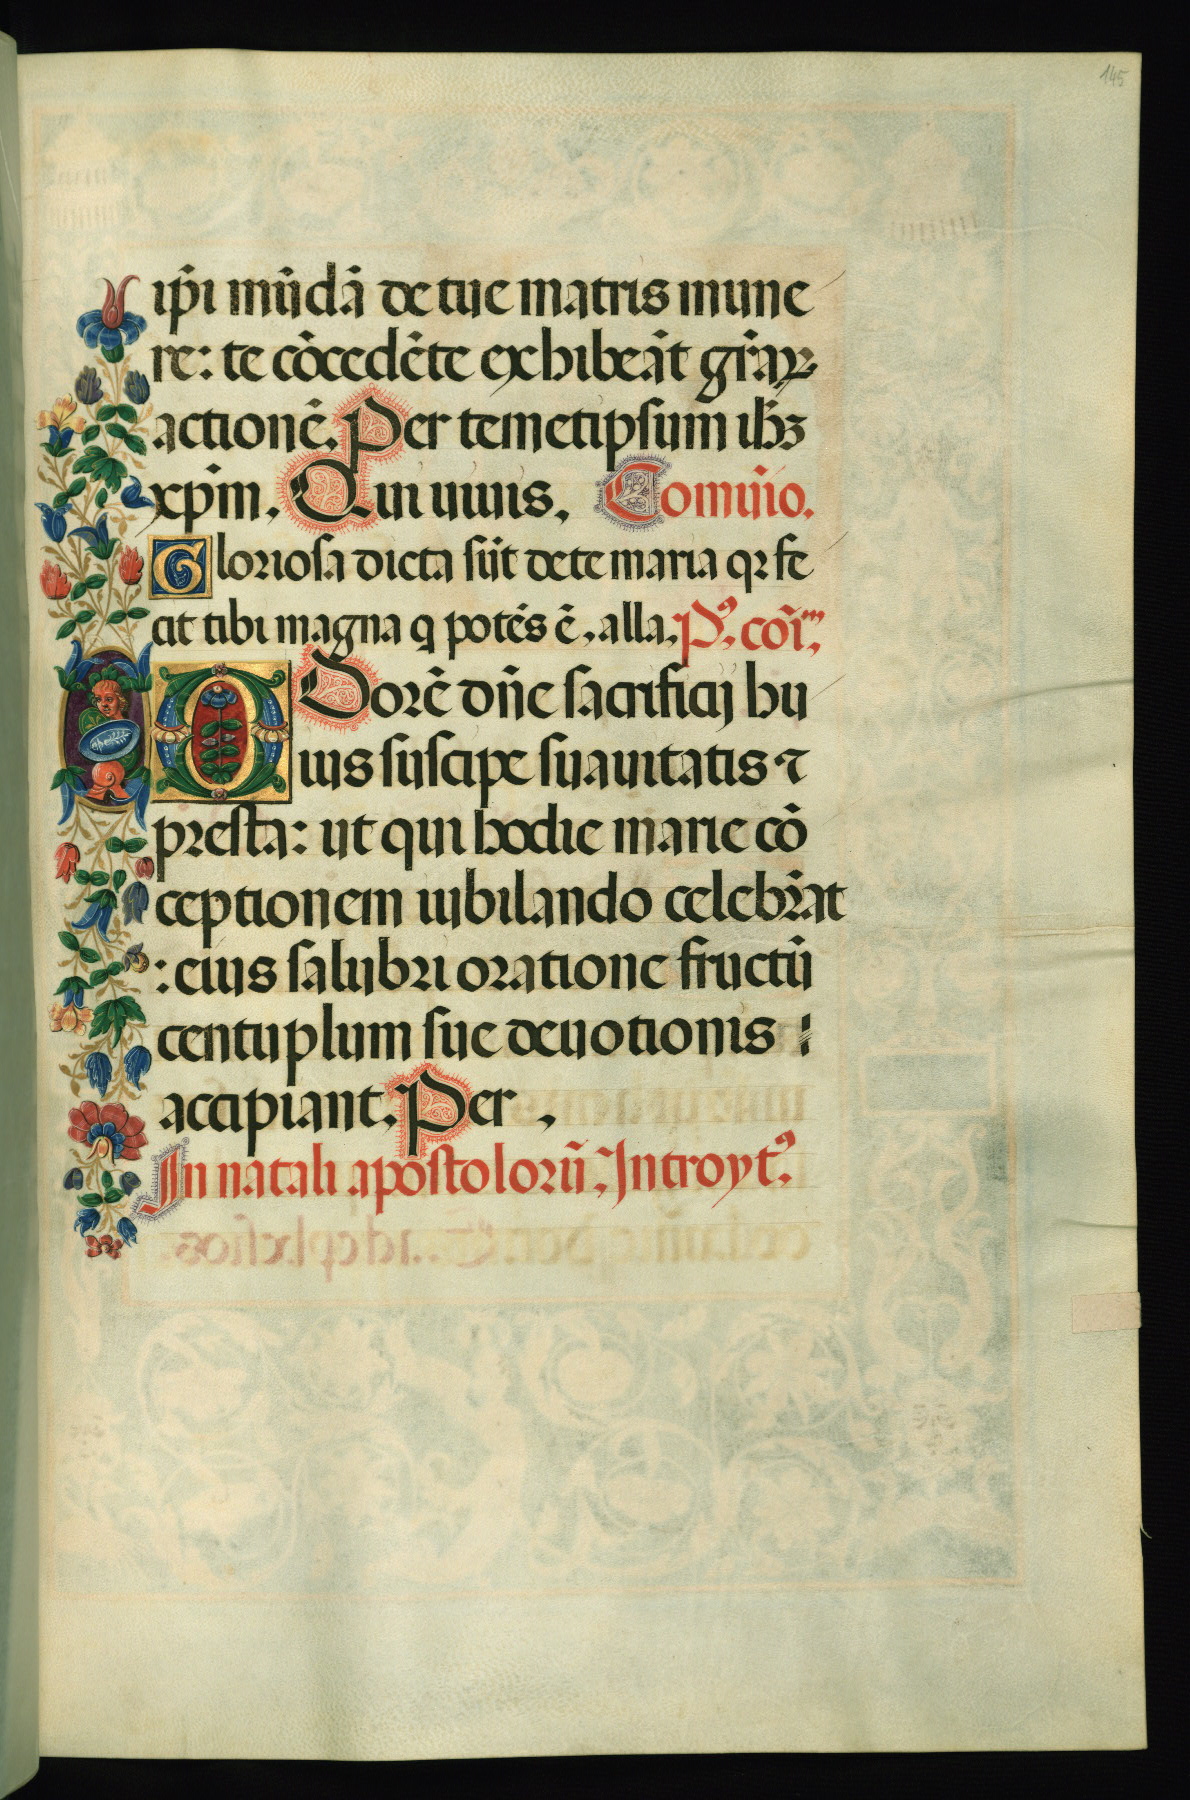 145
ip̄i mūdā de tue matris mune
re: te cōcedēte exhibeāt gr̄aꝝ
actionē. Per temetipsum ihꝫ
xp̄m. Qui uiuis. Comunio.
Gloriosa dicta sūt de te maria qꝛ fe
cit tibi magna q potēs ē. alla. Pꝰ. cōi᷒m.
Odorē dn̄e sacrificij hu
ius suscipe suauitatis ⁊
presta: ut qui hodie marie cō
ceptionem iubilando celebrāt
: eius salubri oratione fructū
centuplum sue deuotionis
accipiant. Per.
In natali apostolorū. Introytꝰ.